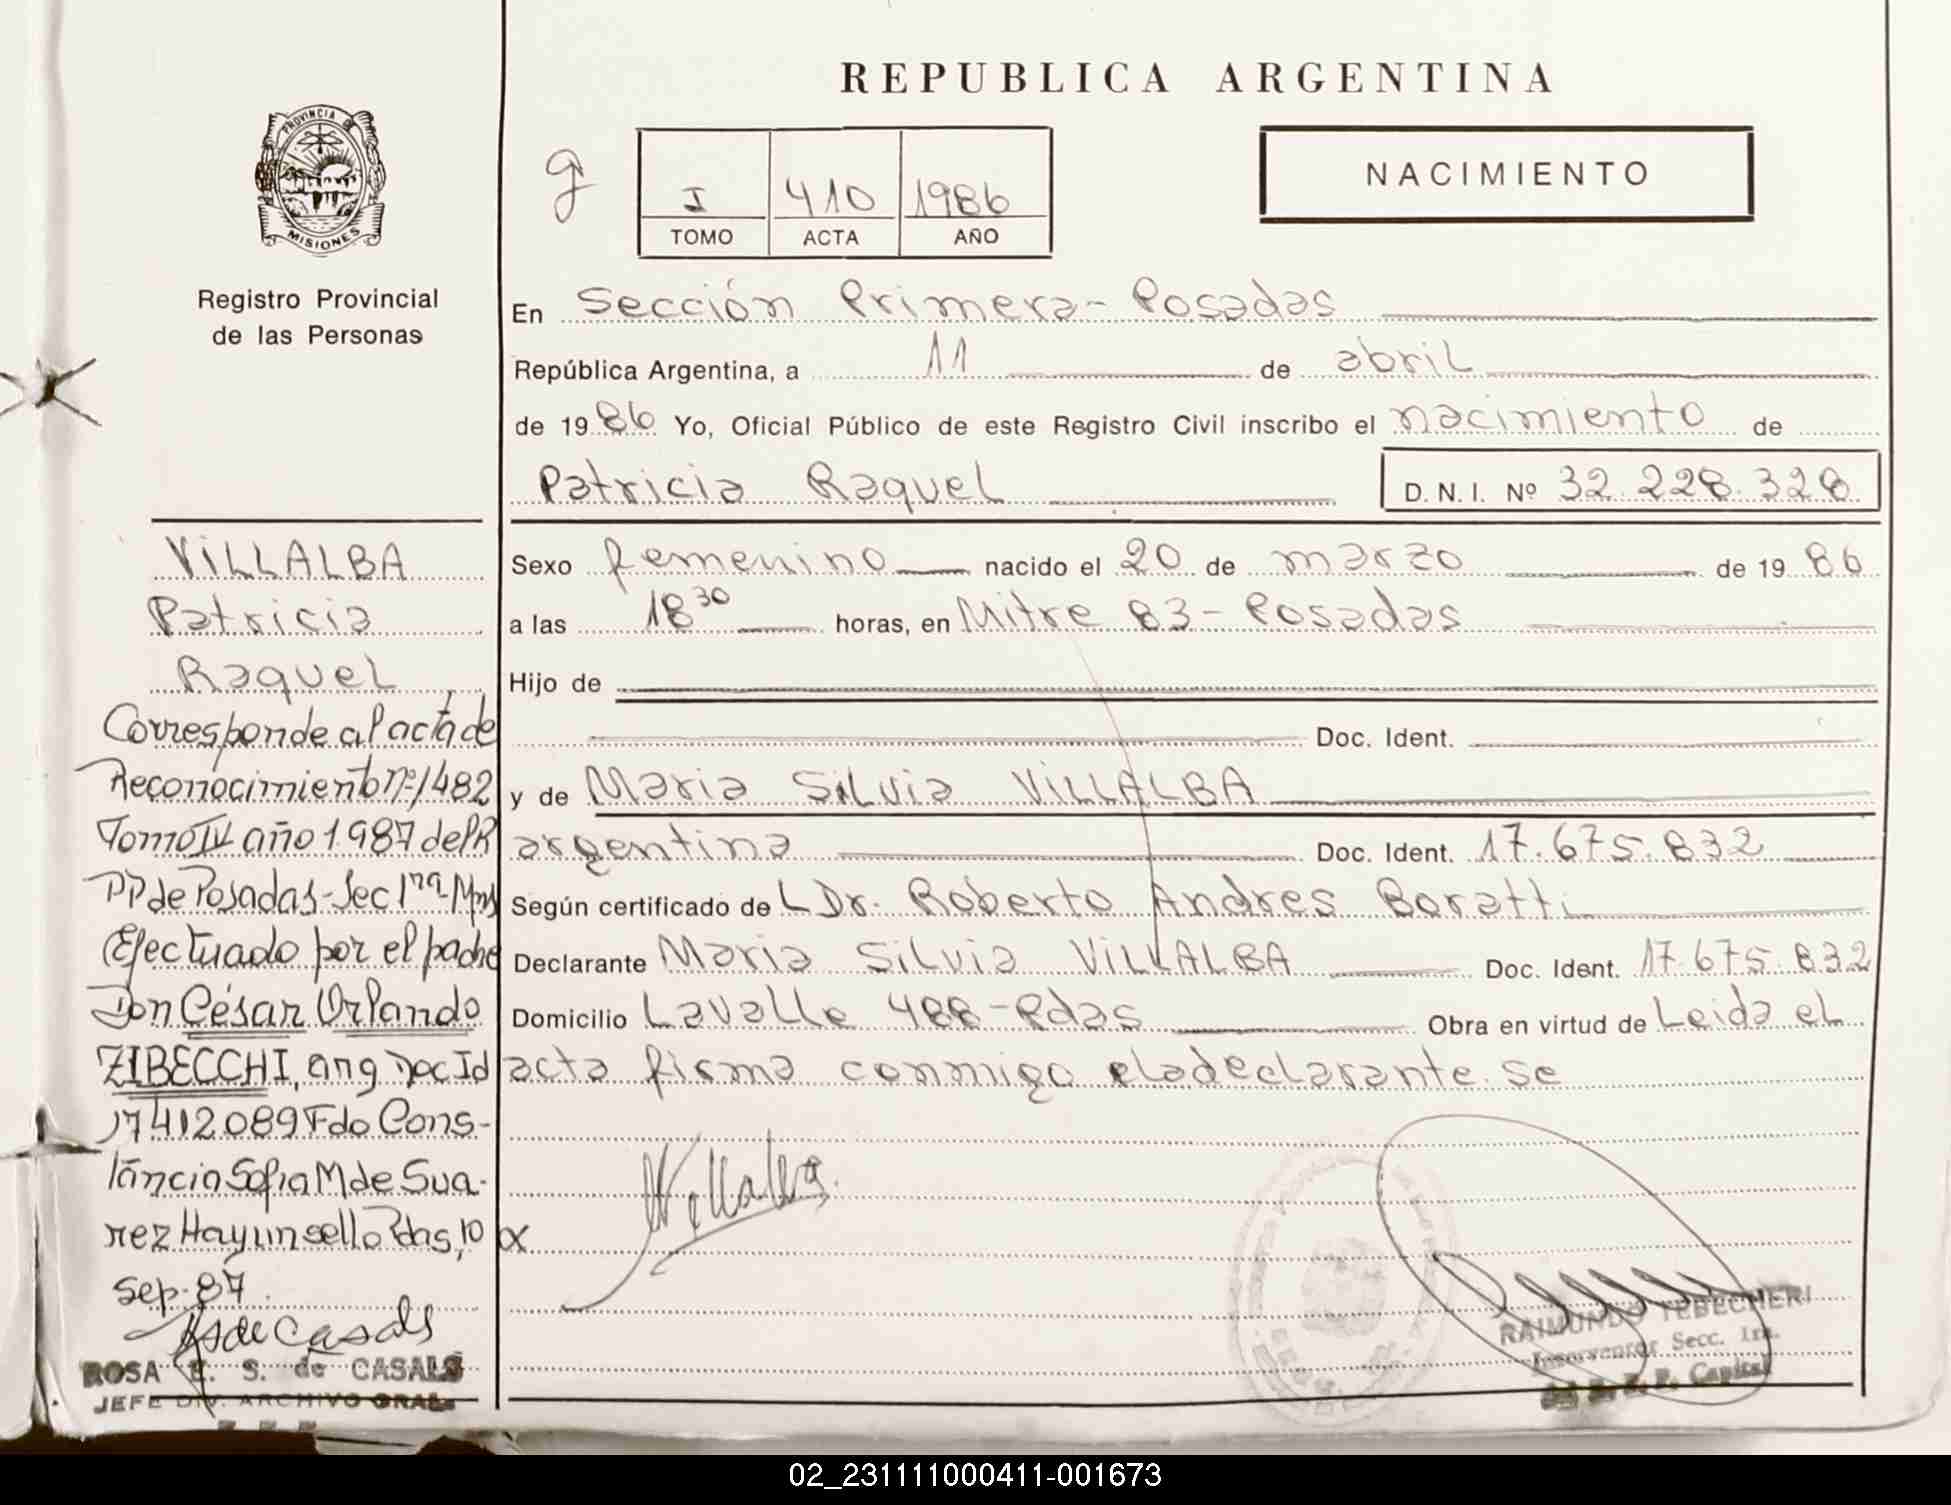 REPUBLICA ARGENTINA
PROVINCIA DE
MISIONES
Registro Provincial
de las Personas
I 410 1986
TOMO ACTA AÑO
NACIMIENTO
En Sección Primera - Posadas
República Argentina, a 11 de abril
de 1986 Yo, Oficial Público de este Registro Civil inscribo el nacimiento de
Patricia Raquel D.N.I. Nº 32.228.328
Sexo femenino nacido el 20 de marzo de 1986
a las 18 30 horas, en Mitre 83 - Posadas
Hijo de
Doc. Ident.
y de Maria Silvia VILLALBA
argentina Doc. Ident. 17.675.832
Según certificado de L Dr. Roberto Andres Boratti
Declarante Maria Silvia VILLALBA Doc. Ident. 17.675.832
Domicilio Lavalle 488 - Pdas Obra en virtud de Leida el
acta firma conmigo eladeclarante. se
Villalba
RAIMUNDO TEBECHERI
Interventor Secc. 1ra.
Capital
VILLALBA
Patricia
Raquel
Corresponde al acta de
Reconocimiento nº 1482
Tomo IV año 1987 del R
PP de Posadas - Sec 1ra Mnes
Efectuado por el padre
Don César Orlando
ZIBECCHI, arg Doc Id
17412089 Fdo Cons-
tancia Sofia M de Sua-
rez Hay un sello Pdas, 10
sep. 87.
ROSA E. S. de CASALS
JEFE DIV. ARCHIVO GRAL.
02_231111000411-001673